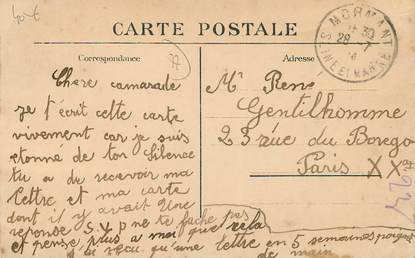 CARTE POSTALE
Correspondance
Adresse
MORMANT
30
28 - 7
SEINE ET MARNE
77
Chere camarade
je t'écrit cette carte
vivement car je suis
etonné de ton silence
tu a du recevoir ma
lettre et ma carte
dont il y avait
reponse S.V.P ne te fache pas
et pense plus a moi que cela
qu'une lettre en 5 semaines
de main
Mr René
Gentilhomme
23 rue du Borego
Paris XX